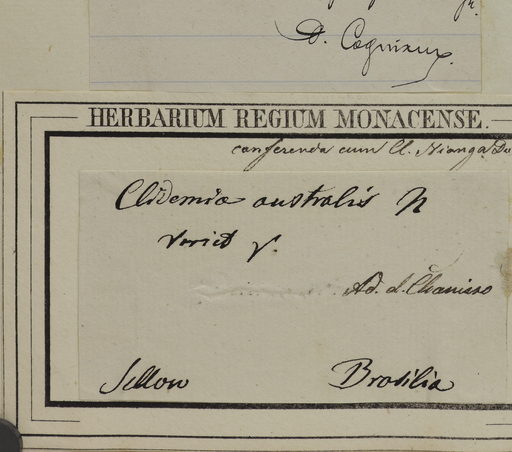 D. Cogniaux.
HERBARIUM REGIUM MONACENSE.
conferenda cum Cl. Nianga Du
Clidemia australis N
variet γ.
Ad. d. Chamisso
Sellow
Brasilia